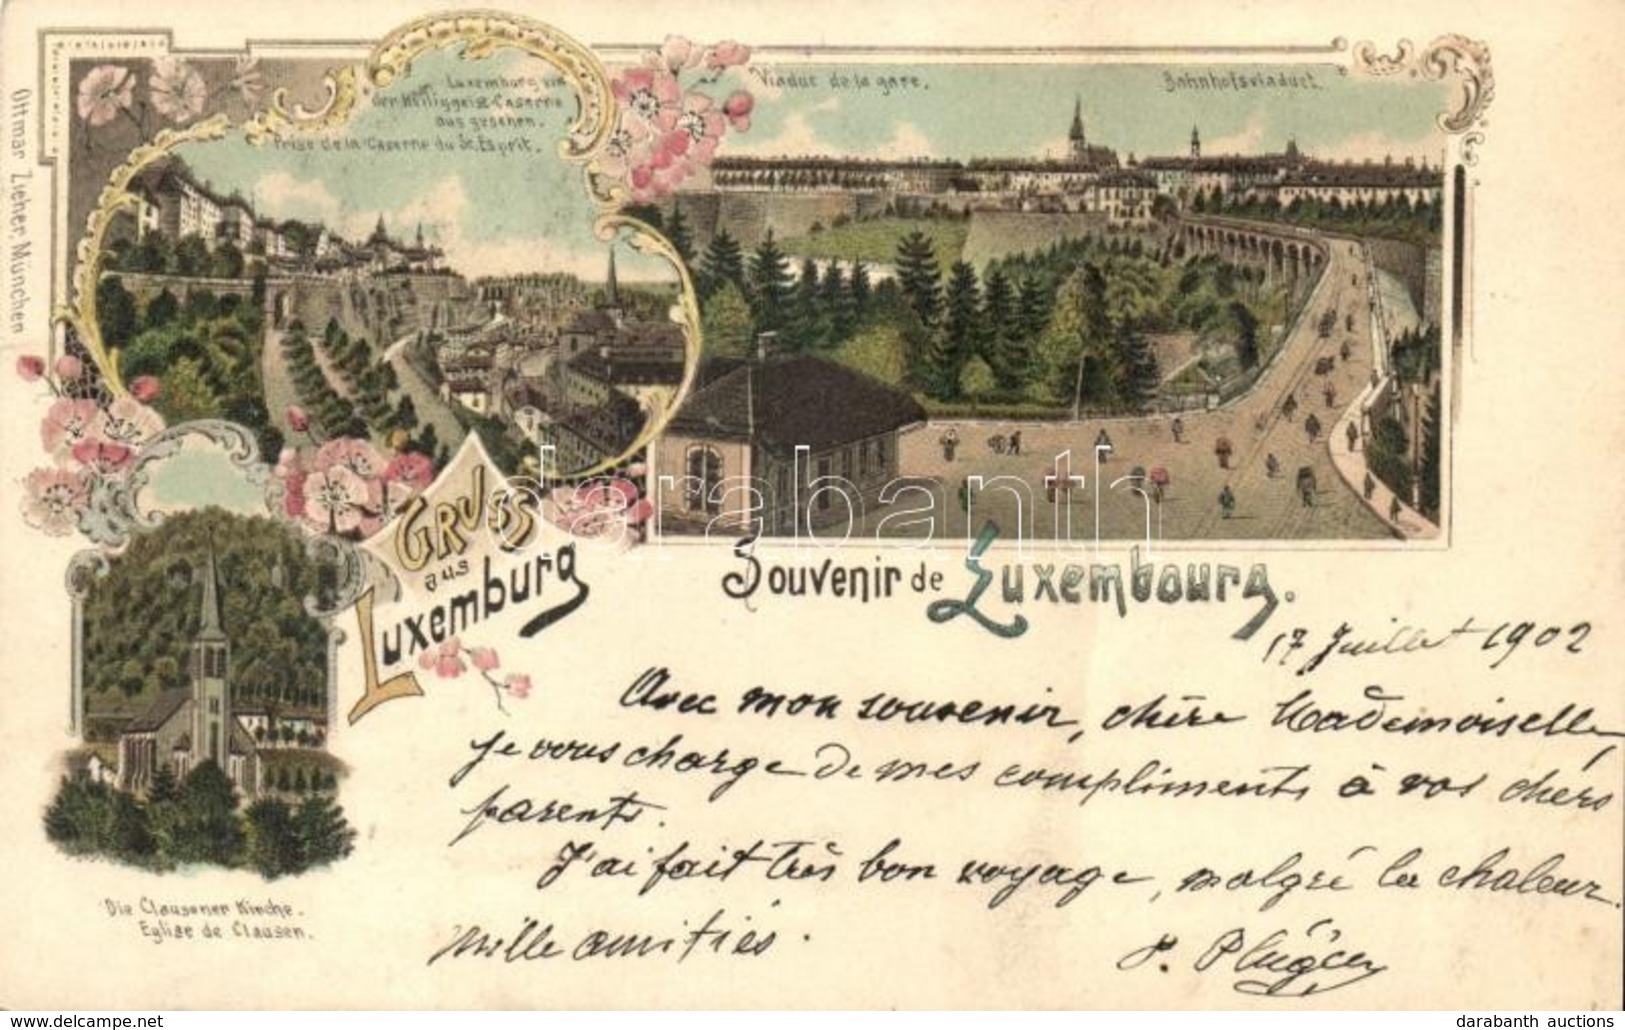 Luxemburg von
der Heiliggeist-Caserne
aus gesehen.
Prise de la Caserne du St. Esprit.
Viaduc de la gare.
Bahnhofsviaduct.
Ottmar Zieher, München
Gruss
aus
Luxemburg
Souvenir de Luxembourg.
darabanth
17 Juillet 1902
Avec mon souvenir, chère Mademoiselle,
je vous charge de mes compliments à vos chers
parents.
J'ai fait très bon voyage, malgré la chaleur.
Mille amitiés.
Die Clausener Kirche.
Eglise de Clausen.
delcampe.net
darabanth auctions